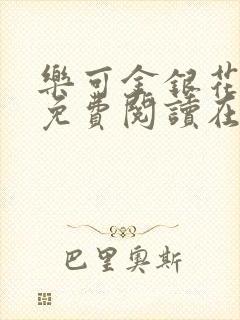 樂可金銀花
免費閱讀在
巴里奧斯